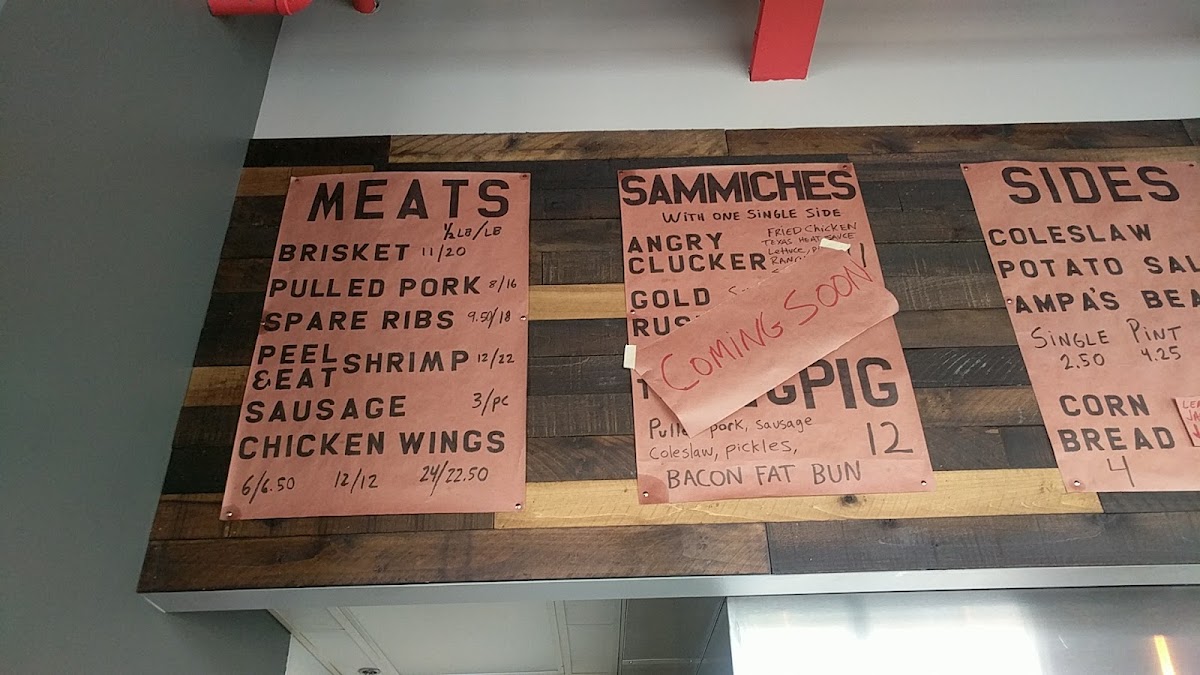 MEATS
1/2 LB/LB
BRISKET 11/20
PULLED PORK 8/16
SPARE RIBS 9.50/18
PEEL & EAT SHRIMP 12/22
SAUSAGE 3/PC
CHICKEN WINGS
6/6.50 12/12 24/22.50
SAMMICHES
WITH ONE SINGLE SIDE
ANGRY CLUCKER
FRIED CHICKEN
TEXAS HEAT SAUCE
Lettuce,
GOLD
COMING SOON
PIG
pork, sausage
Coleslaw, pickles,
12
BACON FAT BUN
SIDES
COLESLAW
POTATO SAL
AMPA'S BEA
SINGLE PINT
2.50 4.25
CORN
BREAD
4